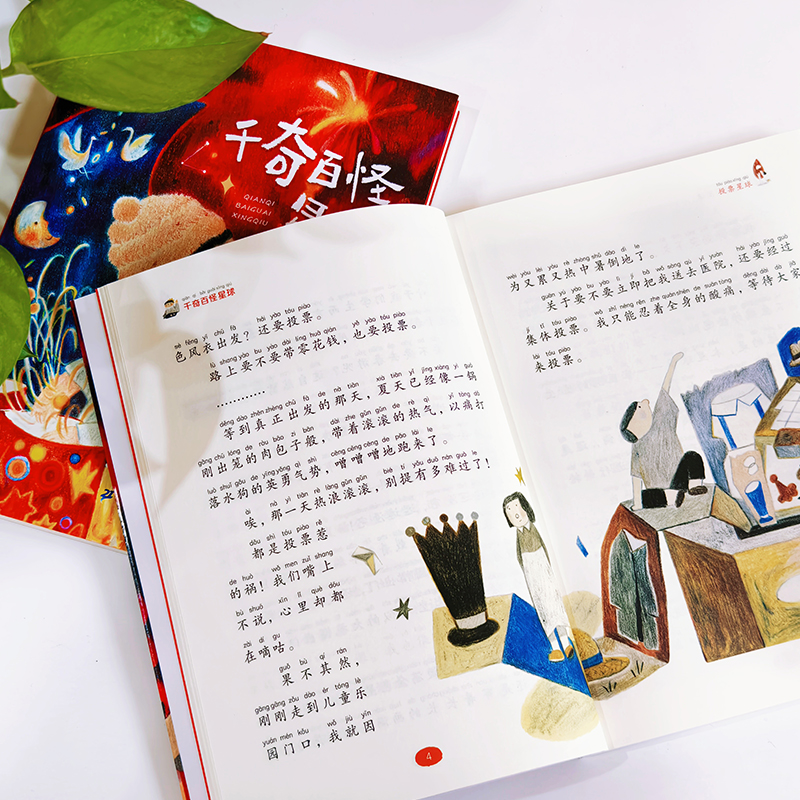 千奇百怪
QIANQI
BAIGUAI
XINGQIU
qiān qí bǎi guài xīng qiú
千奇百怪星球
sè fēng yī chū fā hái yào tóu piào
色风衣出发?还要投票。
lù shang yào bu yào dài líng huā qián yě yào tóu piào
路上要不要带零花钱,也要投票。
…………
děng dào zhēn zhèng chū fā de nà tiān xià tiān yǐ jīng xiàng yì guō
等到真正出发的那天,夏天已经像一锅
gāng chū lóng de ròu bāo zi bān dài zhe gǔn gǔn de rè qì yǐ tòng dǎ
刚出笼的肉包子般,带着滚滚的热气,以痛打
luò shuǐ gǒu de yīng yǒng qì shì cēng cēng cēng de pǎo lái le
落水狗的英勇气势,噌噌噌地跑来了。
ài nà yì tiān rè làng gǔn gǔn bié tí yǒu duō nán guò le
唉,那一天热浪滚滚,别提有多难过了!
dōu shì tóu piào rě
都是投票惹
de huò wǒ men zuǐ shang
的祸!我们嘴上
bù shuō xīn lǐ què dōu
不说,心里却都
zài dí gu
在嘀咕。
guǒ bù qí rán
果不其然,
gāng gāng zǒu dào ér tóng lè
刚刚走到儿童乐
yuán mén kǒu wǒ jiù yīn
园门口,我就因
4
tóu piào xīng qiú
投票星球
wèi yòu lèi yòu rè zhòng shǔ dǎo dì le
为又累又热中暑倒地了。
guān yú yào bu yào lì jí bǎ wǒ sòng qù yī yuàn hái yào jīng guò
关于要不要立即把我送去医院,还要经过
jí tǐ tóu piào wǒ zhǐ néng rěn zhe quán shēn de suān tòng děng dài dà jiā
集体投票。我只能忍着全身的酸痛,等待大家
lái tóu piào
来投票。